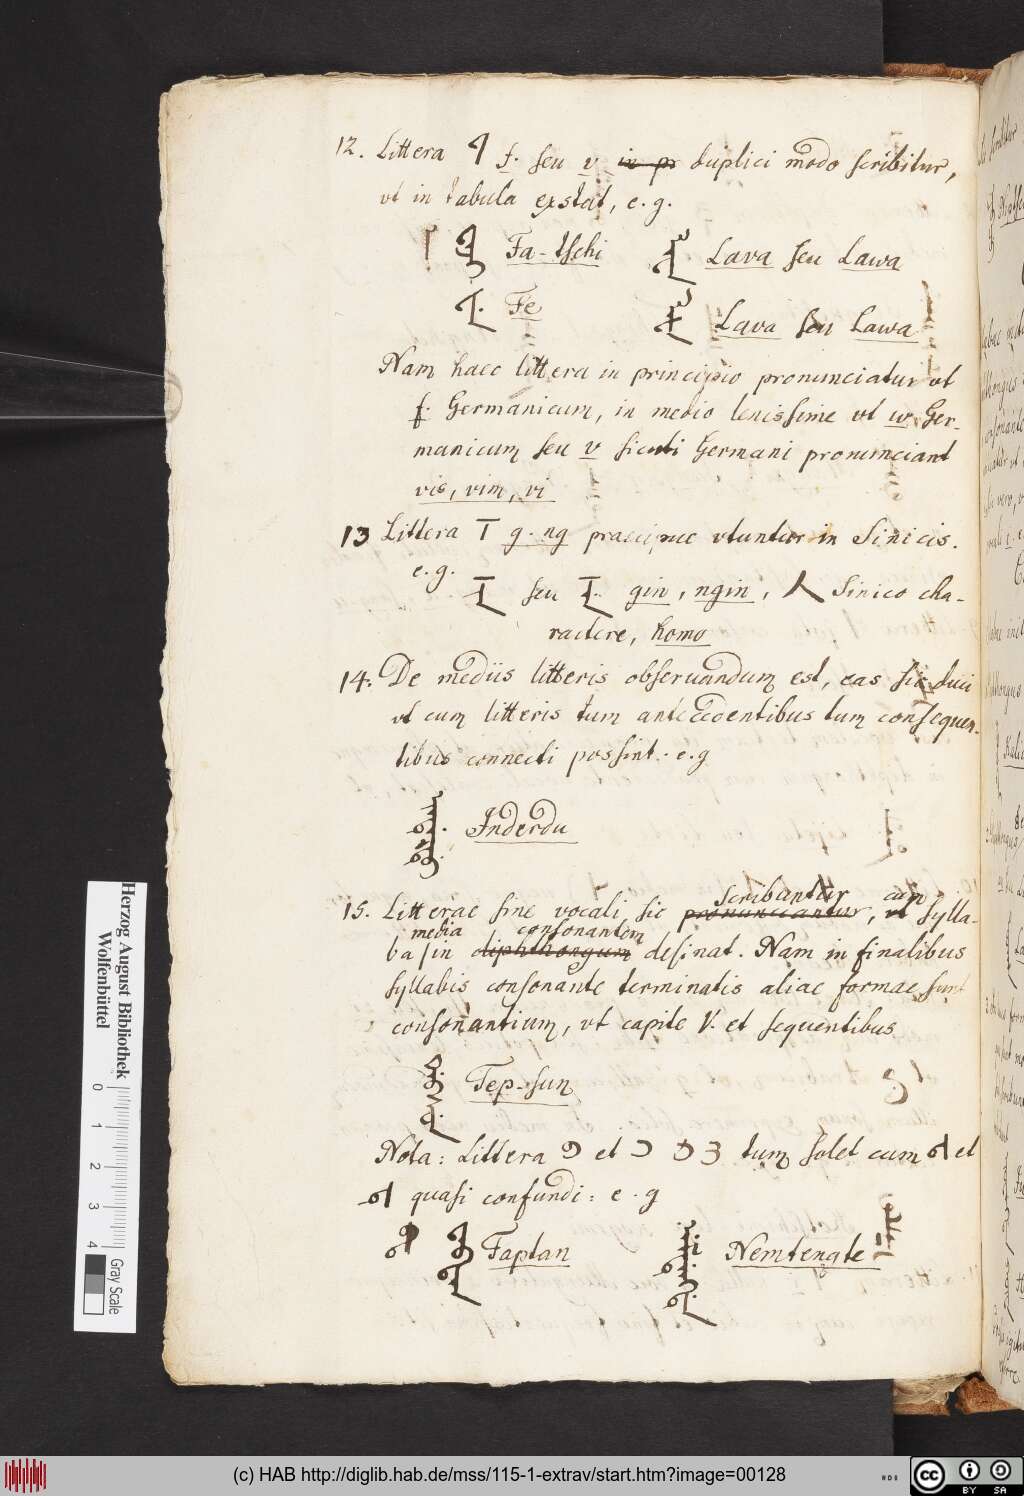 12. Littera f. seu v in pr duplici modo scribitur,
vt in tabula exstat, e. g.
Fa-tschi Lava seu Lawa
Fe Lava seu Lawa
Nam haec littera in principio pronunciatur vt
f. Germanicum, in medio lenissime vt w Ger-
manicum seu v sicuti Germani pronunciant
vis, vim, vi
13 Littera g. ng praecipue vtuntur in Sinicis.
e. g. seu gin, ngin, 人 Sinico cha-
ractere, homo
14. De mediis litteris obseruandum est, eas sic duci
vt cum litteris tum antecedentibus tum consequen-
tibus connecti possint. e. g
Inderdu
scribantur cum
15. Litterae sine vocali sic pronunciantur, vt sylla-
media consonantem
ba in diphthongum desinat. Nam in finalibus
syllabis consonante terminatis aliae formae sunt
consonantium, vt capite V. et sequentibus
Tep-sun
Nota: Littera et tum solet cum et
quasi confundi: e. g
Faptan Nemtengte
Herzog August Bibliothek
Wolfenbüttel
0 1 2 3 4
Gray Scale
(c) HAB http://diglib.hab.de/mss/115-1-extrav/start.htm?image=00128
cc BY SA